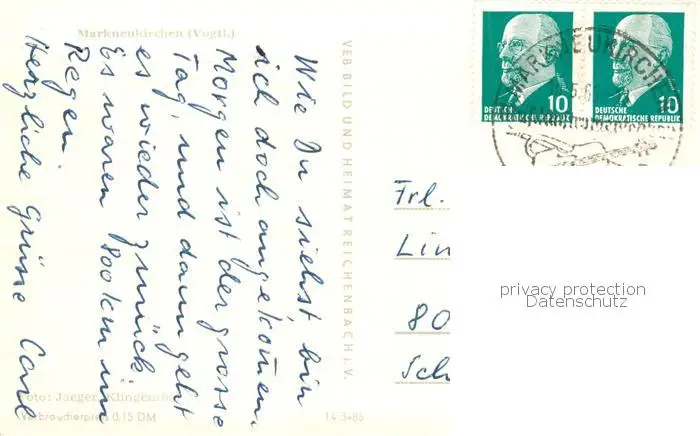 Markneukirchen (Vogtl.)
Wie Du siehst bin
ich doch angekomen.
Morgen ist der grosse
Tag, und dann geht
es wieder zurück.
Es waren 800 km im
Regen.
Herzliche Grüsse Carl
VEB BILD UND HEIMAT REICHENBACH i. V.
Foto: Jaeger, Klingenthal
Verbraucherpreis 0,15 DM
14 3486
10
DEUTSCHE
DEMOKRATISCHE REPUBLIK
10
DEUTSCHE
DEMOKRATISCHE REPUBLIK
MARKNEUKIRCHEN
Frl.
Lin
80
Sch
privacy protection
Datenschutz